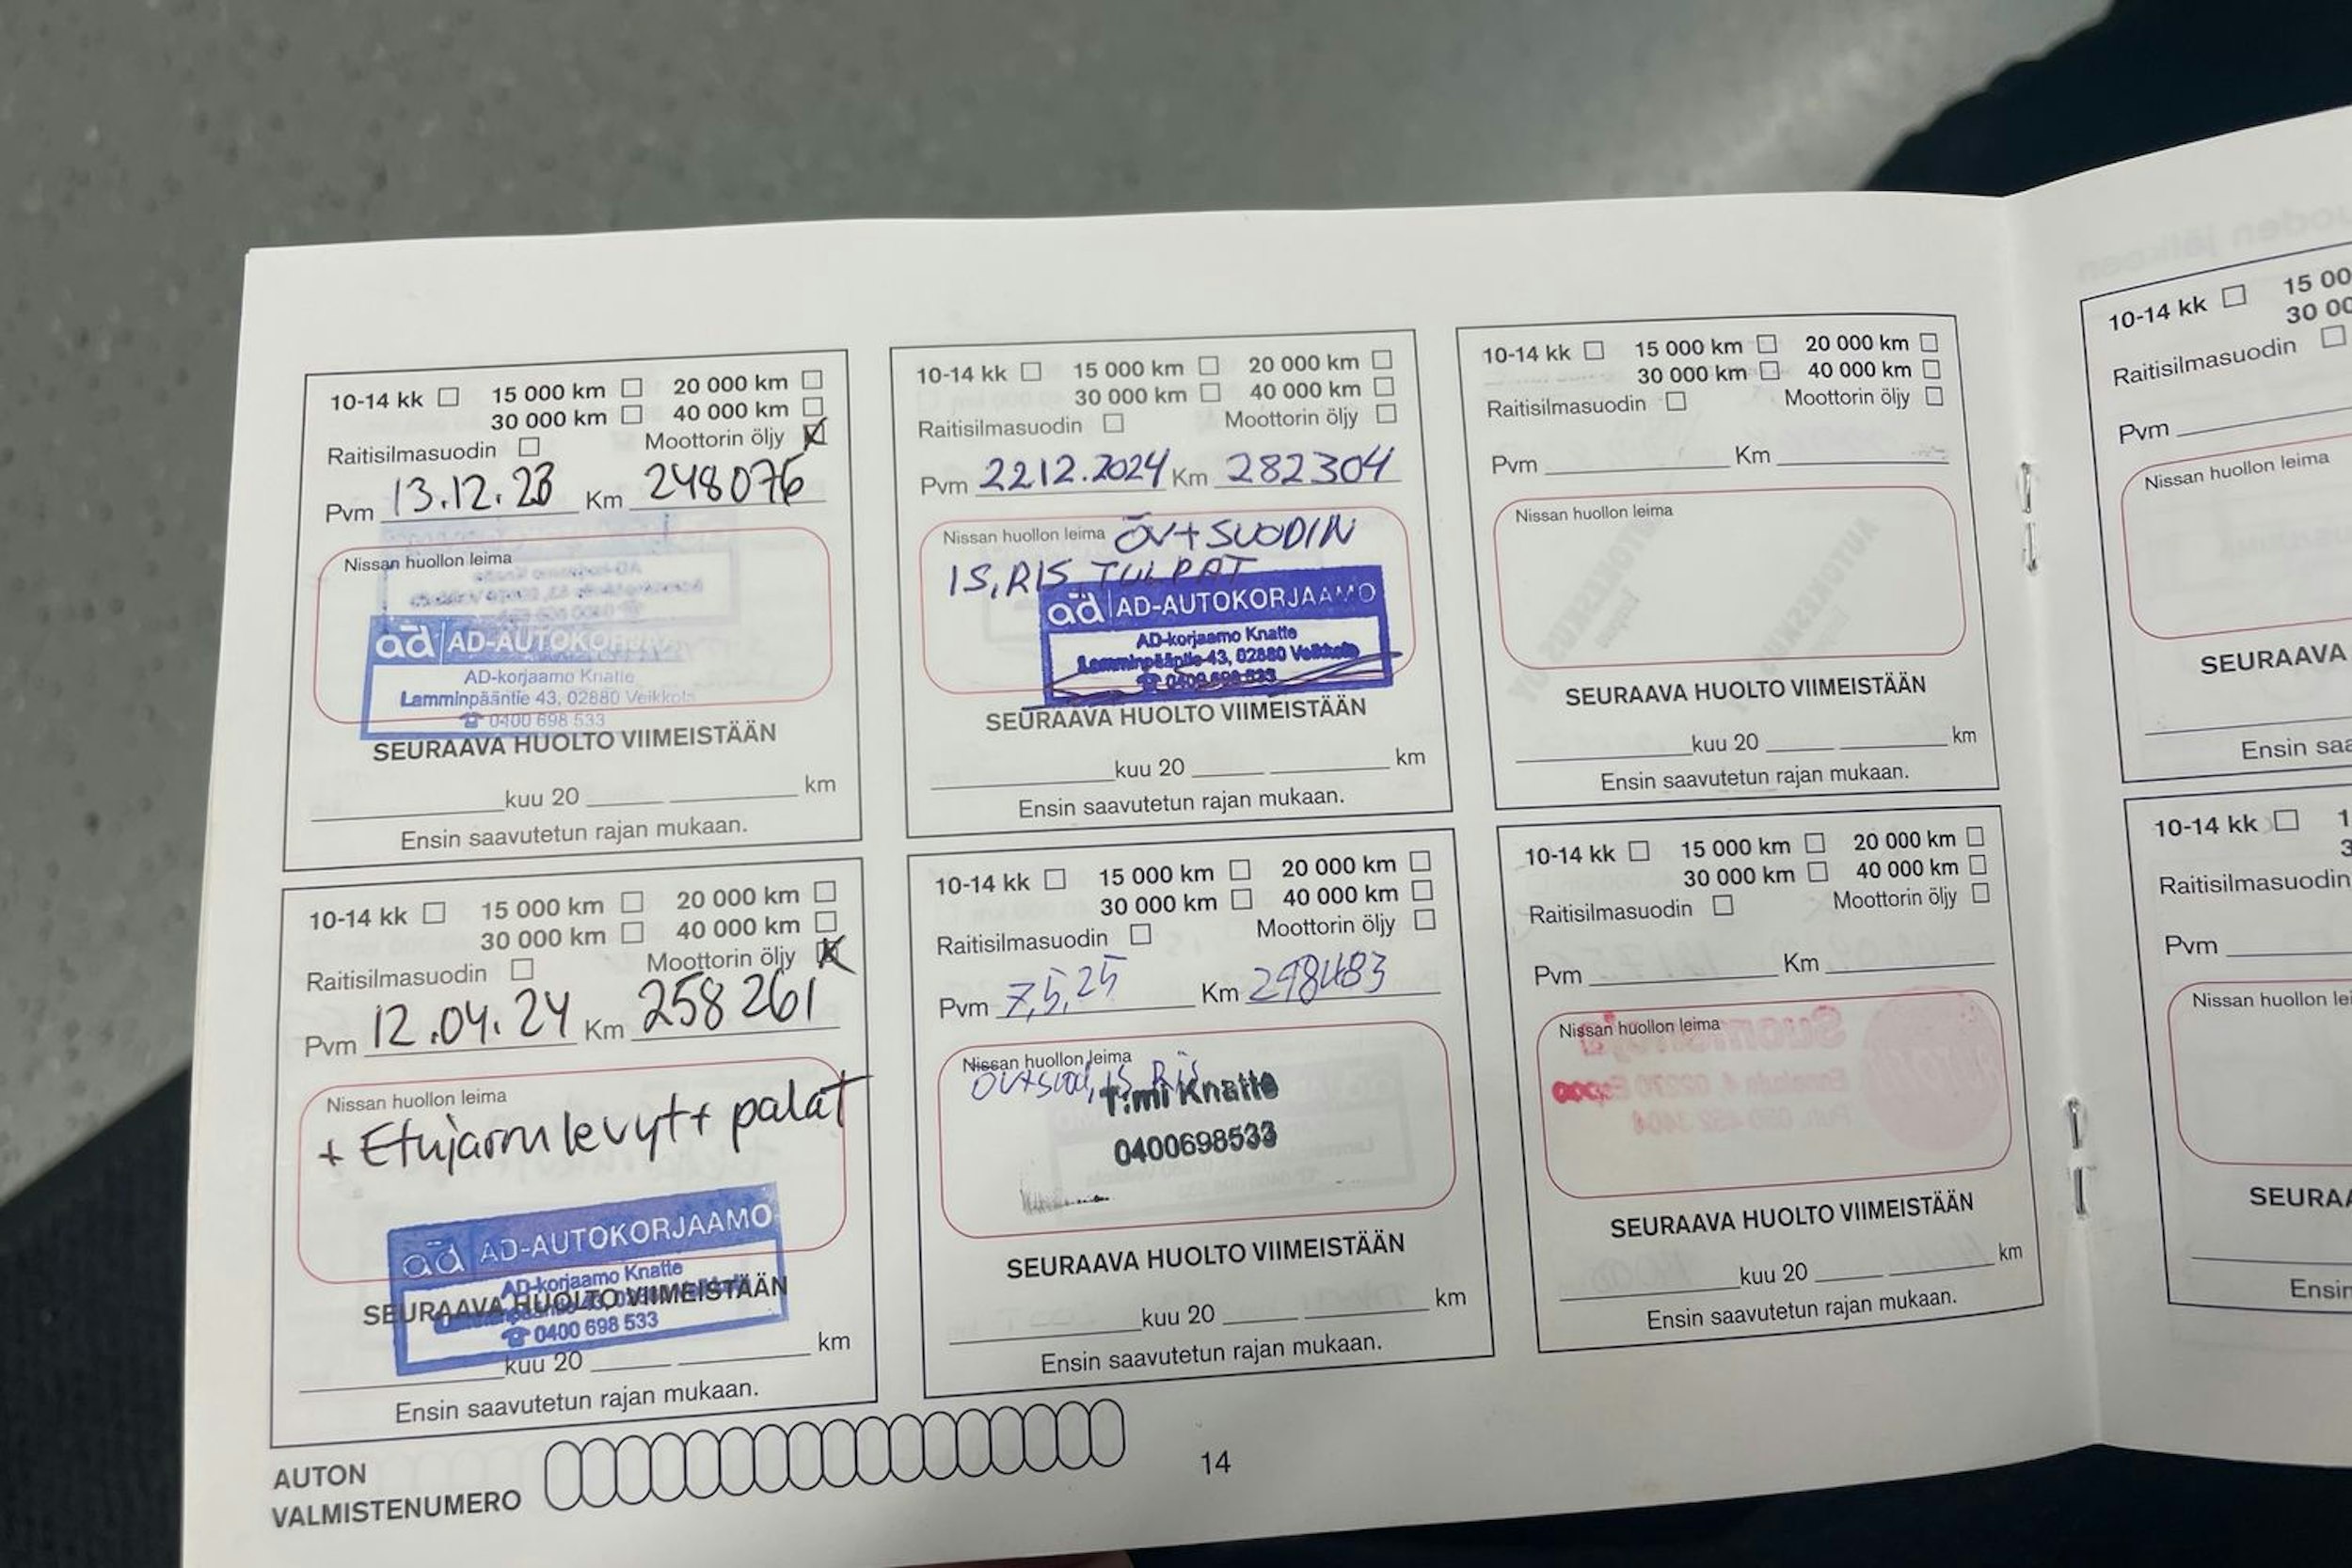 10-14 kk 15 000 km 20 000 km
30 000 km 40 000 km
Raitisilmasuodin Moottorin öljy
Pvm 13.12.23 Km 248076
Nissan huollon leima
ad AD-AUTOKORJAAMO
AD-korjaamo Knatte
Lamminpääntie 43, 02880 Veikkola
☎ 0400 698 533
SEURAAVA HUOLTO VIIMEISTÄÄN
kuu 20 km
Ensin saavutetun rajan mukaan.
10-14 kk 15 000 km 20 000 km
30 000 km 40 000 km
Raitisilmasuodin Moottorin öljy
Pvm 22.12.2024 Km 282304
Nissan huollon leima ÖV+SUODIN
IS, RIS, TULPAT
ad AD-AUTOKORJAAMO
AD-korjaamo Knatte
Lamminpääntie 43, 02880 Veikkola
☎ 0400 698 533
SEURAAVA HUOLTO VIIMEISTÄÄN
kuu 20 km
Ensin saavutetun rajan mukaan.
10-14 kk 15 000 km 20 000 km
30 000 km 40 000 km
Raitisilmasuodin Moottorin öljy
Pvm Km
Nissan huollon leima
SEURAAVA HUOLTO VIIMEISTÄÄN
kuu 20 km
Ensin saavutetun rajan mukaan.
10-14 kk 15 00
30 00
Raitisilmasuodin
Pvm
Nissan huollon leima
SEURAAVA
Ensin saa
10-14 kk 15 000 km 20 000 km
30 000 km 40 000 km
Raitisilmasuodin Moottorin öljy
Pvm 12.04.24 Km 258261
Nissan huollon leima
+ Etujarrulevyt + palat
ad AD-AUTOKORJAAMO
AD-korjaamo Knatte
☎ 0400 698 533
SEURAAVA HUOLTO VIIMEISTÄÄN
kuu 20 km
Ensin saavutetun rajan mukaan.
10-14 kk 15 000 km 20 000 km
30 000 km 40 000 km
Raitisilmasuodin Moottorin öljy
Pvm 7,5,25 Km 298483
Nissan huollon leima
ÖV+suod, IS, RIS
T:mi Knatte
0400698533
SEURAAVA HUOLTO VIIMEISTÄÄN
kuu 20 km
Ensin saavutetun rajan mukaan.
10-14 kk 15 000 km 20 000 km
30 000 km 40 000 km
Raitisilmasuodin Moottorin öljy
Pvm Km
Nissan huollon leima
SEURAAVA HUOLTO VIIMEISTÄÄN
kuu 20 km
Ensin saavutetun rajan mukaan.
10-14 kk 1
3
Raitisilmasuodin
Pvm
Nissan huollon lei
SEURAA
Ensin
AUTON
VALMISTENUMERO
14